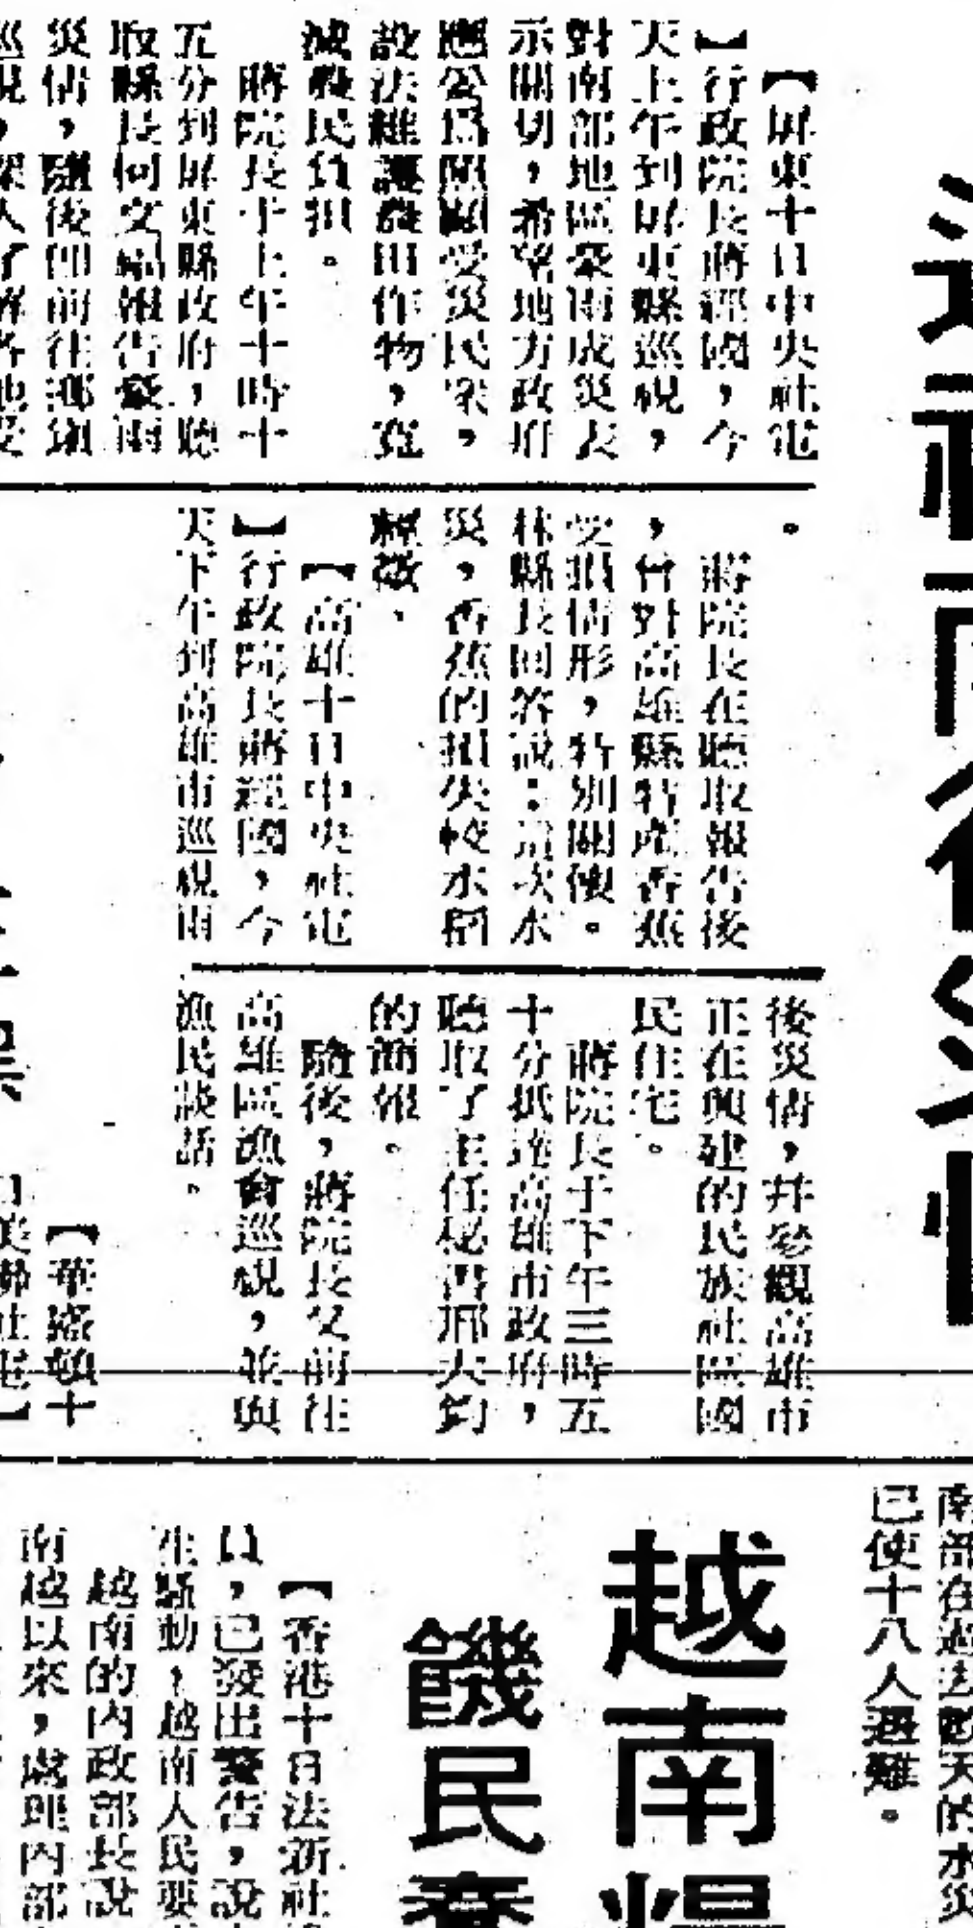 【屏東十日中央社電
】行政院長蔣經國,今
天上午到屏東縣巡視,
對南部地區豪雨成災表
示關切,希望地方政府
應公爲照顧受災民衆,
設法維護農田作物,寬
減農民負担。
蔣院長于上午十時十
五分到屏東縣政府,聽
取縣長何文報告豪雨
災情,隨後即前往鄉鎮
巡視,深入了解各地受
。
蔣院長在聽取報告後
,曾對高雄縣特產香蕉
受損情形,特別關懷。
林縣長回答說:這次水
災,香蕉的損失較水稻
輕微.
【高雄十日中央社電
】行政院長蔣經國,今
天下午到高雄市巡視雨
後災情,并參觀高雄市
正在興建的民族社區國
民住宅。
蔣院長于下午三時五
十分抵達高雄市政府,
聽取了主任秘書邢大鈞
的簡報。
隨後,蔣院長又前往
高雄區漁會巡視,並與
漁民談話。
【華盛頓十
日美聯社電】
南部在過去數天的水災
已使十八人遇難。
越南
饑民
【香港十日法新社
,已發出警告,說
生騷動,越南人民要
越南的內政部長說
南越以來,處理內部